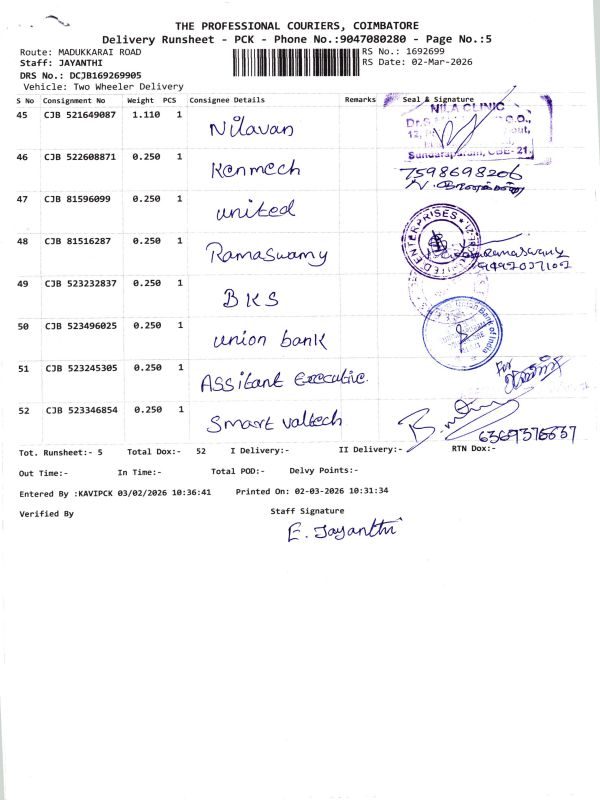 THE PROFESSIONAL COURIERS, COIMBATORE
Delivery Runsheet - PCK - Phone No.:9047080280 - Page No.:5
Route: MADUKKARAI ROAD
RS No.: 1692699
Staff: JAYANTHI
RS Date: 02-Mar-2026
DRS No.: DCJB169269905
Vehicle: Two Wheeler Delivery
S No Consignment No Weight PCS Consignee Details Remarks Seal & Signature
45 CJB 521649087 1.110 1 Nilavan
NILA CLINIC
Sundarapuram, CBE-21.
46 CJB 522608871 0.250 1 Kenmech
7598698206
47 CJB 81596099 0.250 1 united
48 CJB 81516287 0.250 1 Ramaswamy
Ramaswamy
49 CJB 523232837 0.250 1 BKS
50 CJB 523496025 0.250 1 union bank
Union Bank of India
51 CJB 523245305 0.250 1 Assitant Executive.
For
52 CJB 523346854 0.250 1 Smart valtech
6369376637
Tot. Runsheet:- 5 Total Dox:- 52 I Delivery:- II Delivery:- RTN Dox:-
Out Time:- In Time:- Total POD:- Delvy Points:-
Entered By :KAVIPCK 03/02/2026 10:36:41 Printed On: 02-03-2026 10:31:34
Verified By Staff Signature
E. Jayanthi